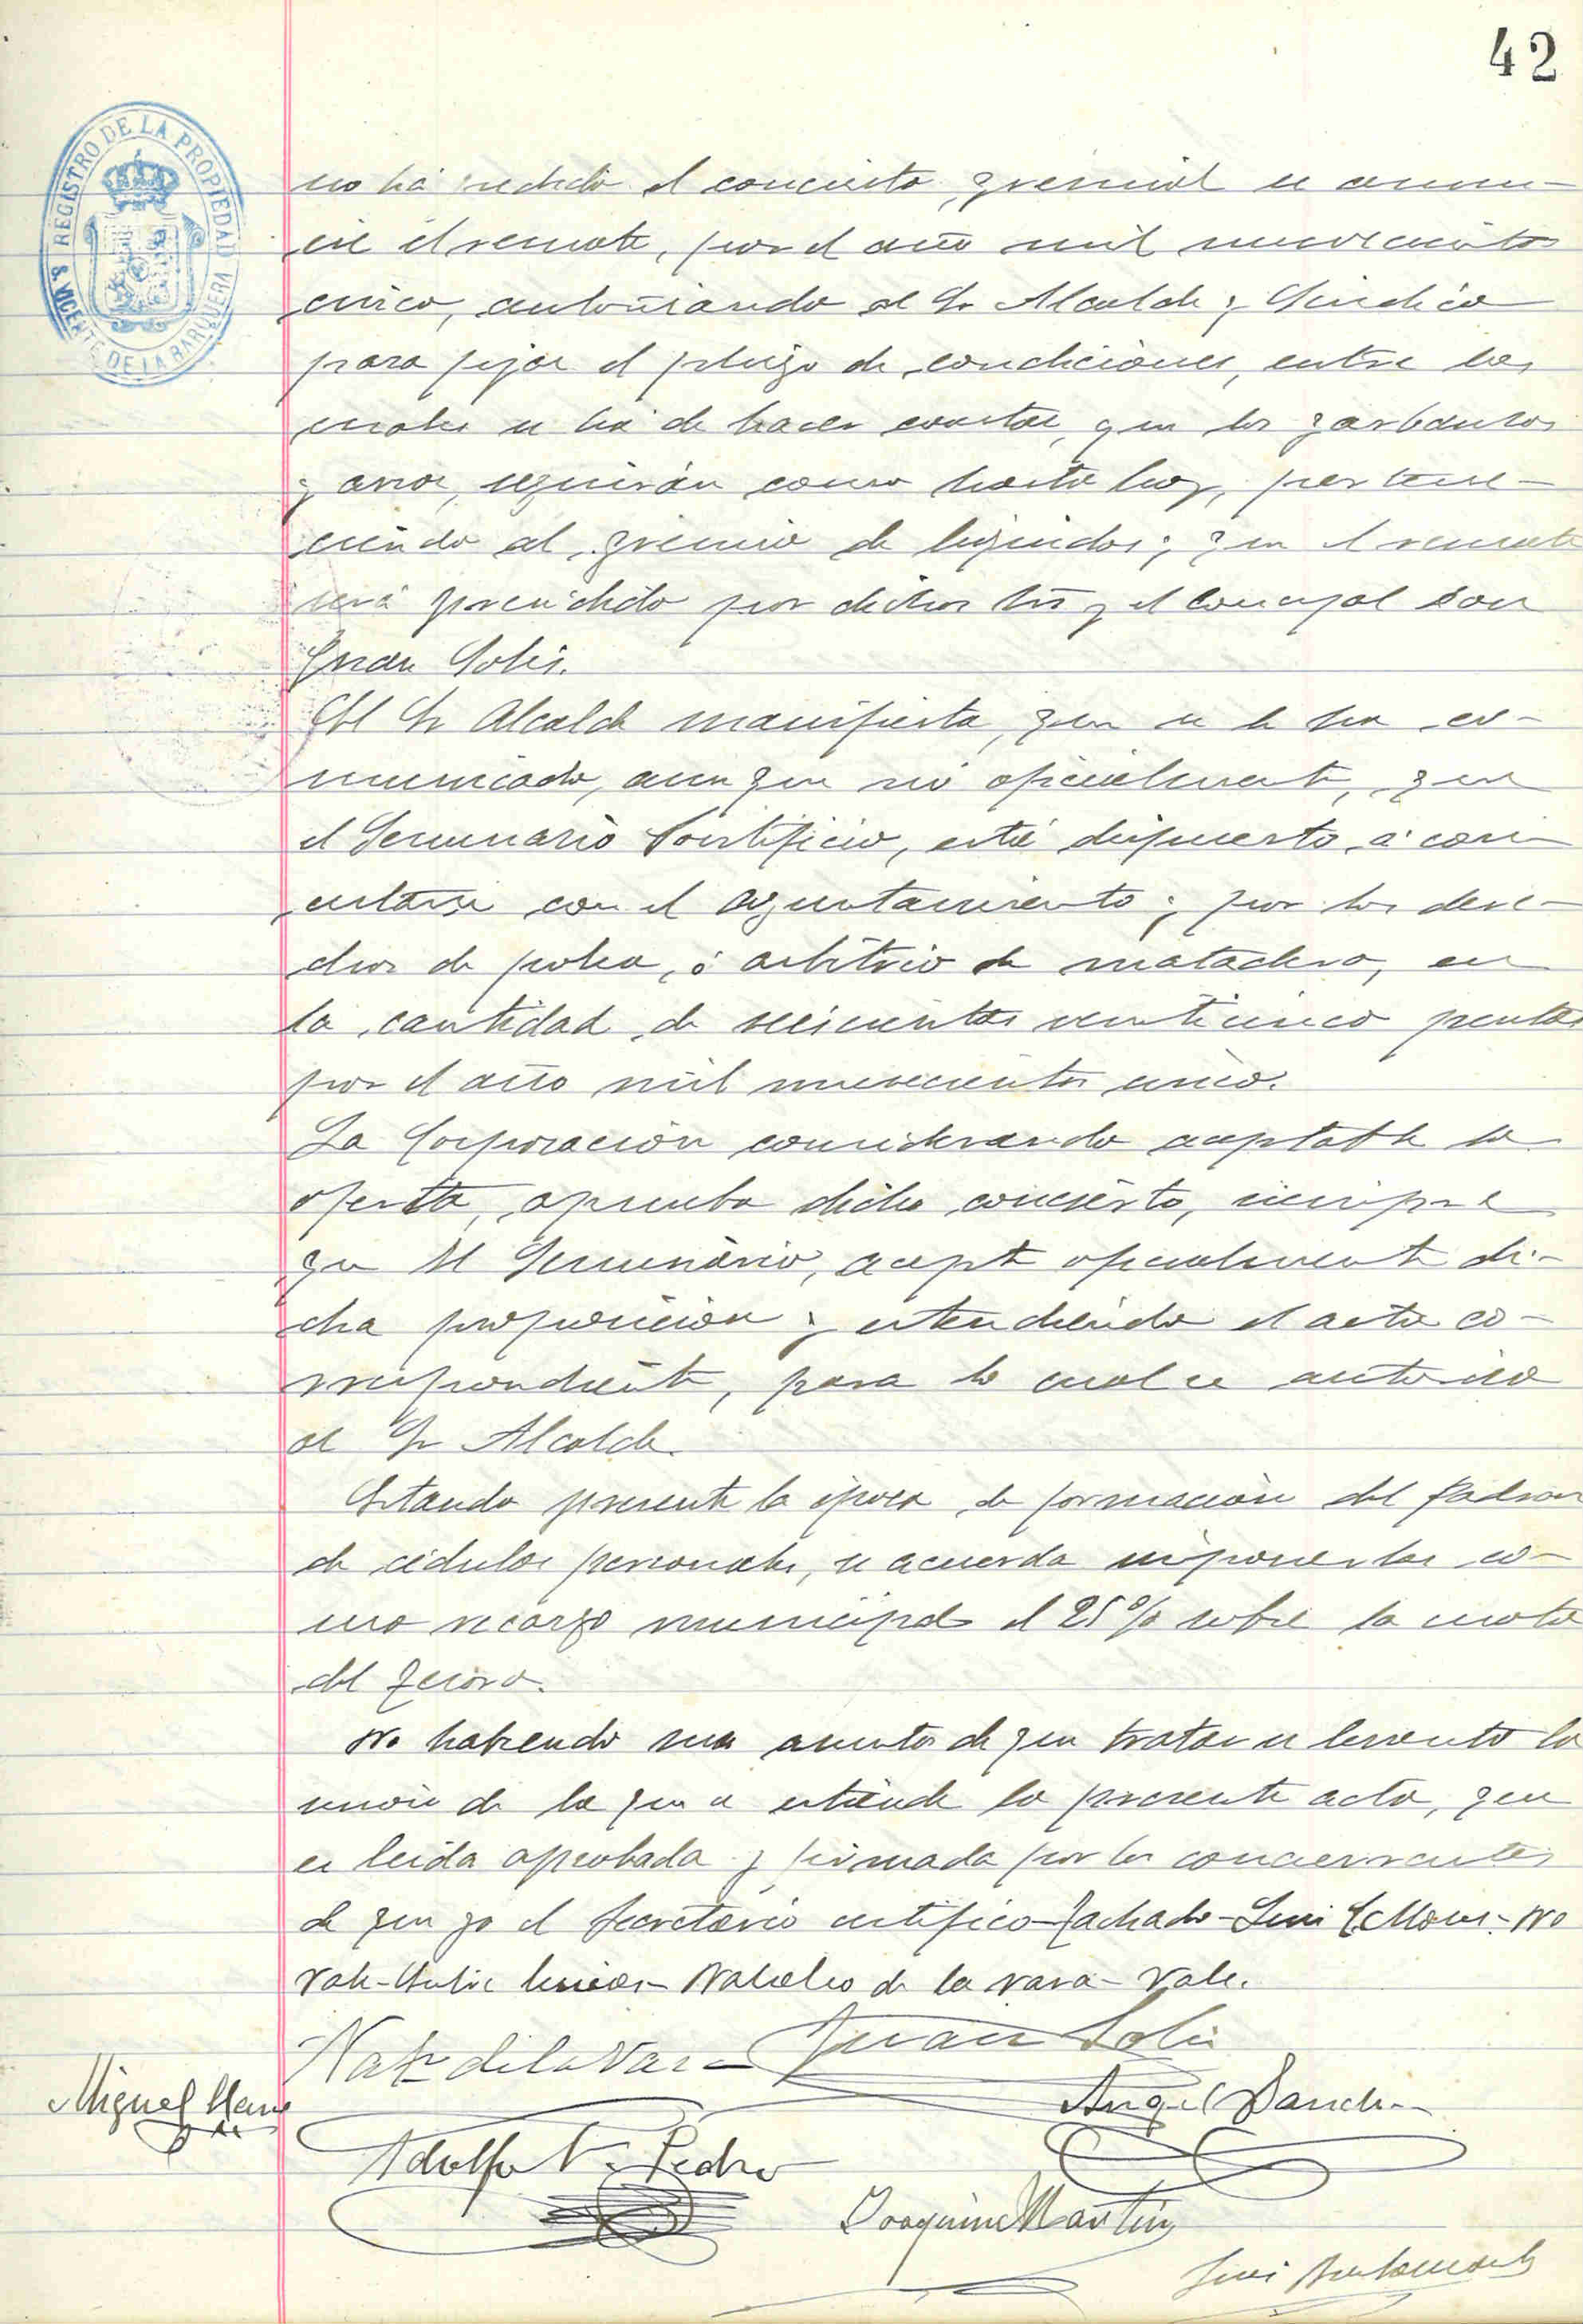 42
REGISTRO DE LA PROPIEDAD
S. VICENTE DE LA BARQUERA
no há el concierto gremial se anun-
cie el remate, por el año mil novecientos
cinco, autorizando al Sr Alcalde y Sindico
para fijar el pliego de condiciones, entre las
cuales se ha de hacer constar, que los garbanzos
y arroz, seguirán como hasta hoy, pertene-
ciendo al gremio de liquidos; que el remate
será presidido por dichos Srs y el Concejal Don
Juan Solis.
El Sr Alcalde manifiesta, que se le ha co-
municado, aun que no oficialmente, que
el Seminario Pontificio, está dispuesto, á con-
certarse con el Ayuntamiento; por los dere-
chos de , ó arbitrio de matadero, en
la cantidad de seiscientas venticinco pesetas
por el año mil novecientos cinco.
La Corporación considerando aceptable la
oferta, aprueba dicho concierto, siempre
que el Seminario, acepte oficialmente di-
cha proposicion y extendiendo el acta co-
rrespondiente, para lo cual se autoriza
al Sr Alcalde.
Estando presente la época de formación del padron
de cédulas personales, se acuerda imponerlas co-
mo recargo municipal el 25% sobre la cuota
del Tesoro.
No habiendo mas asuntos de que tratar se levantó la
sesión de la que se extiende la presente acta, que
es leida aprobada y firmada por los concurrentes
de que yo el Secretario certifico-Tachado-Luis -No
Vale-Entre lineas-Natalio de la Vara-Vale.
Nat. de la Vara Juan Solis
Miguel
Angel Sanchez
Adolfo V. Pedro
Joaquin Martin
Luis